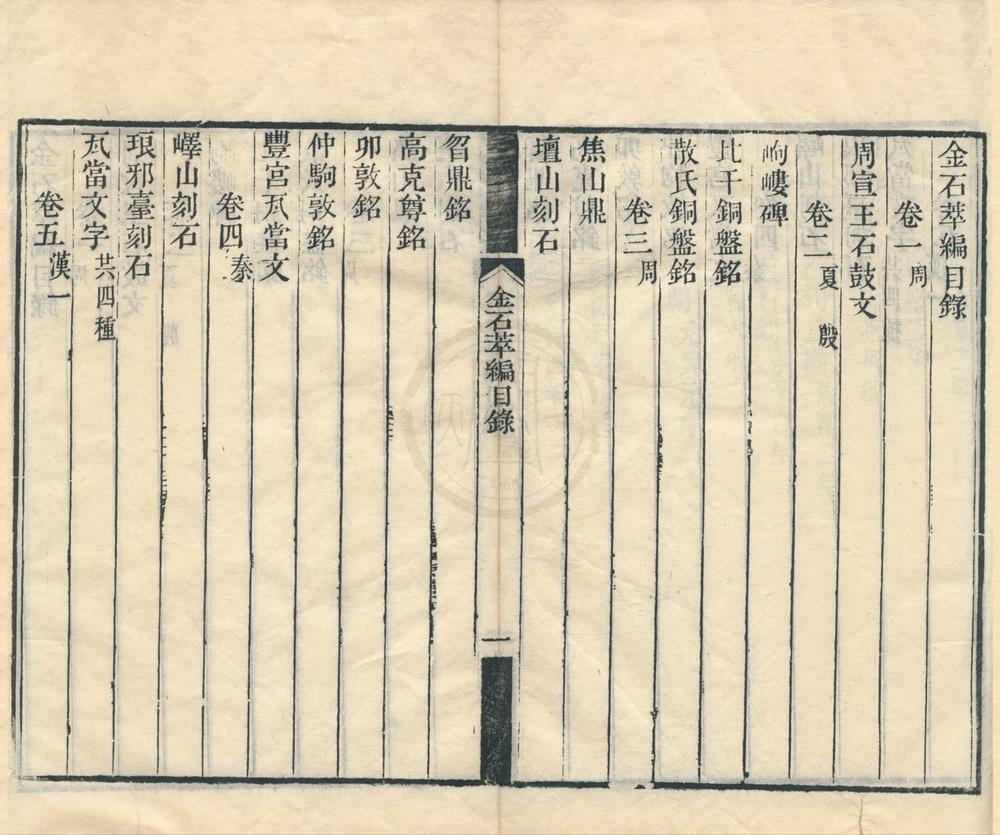 金石萃編目錄
卷一 周
周宣王石鼓文
卷二 夏 殷
岣嶁碑
比干銅盤銘
散氏銅盤銘
卷三 周
焦山鼎
壇山刻石
金石萃編目錄
一
曶鼎銘
高克尊銘
卯敦銘
仲駒敦銘
豐宮瓦當文
卷四 秦
嶧山刻石
琅邪臺刻石
瓦當文字 共四種
卷五 漢一